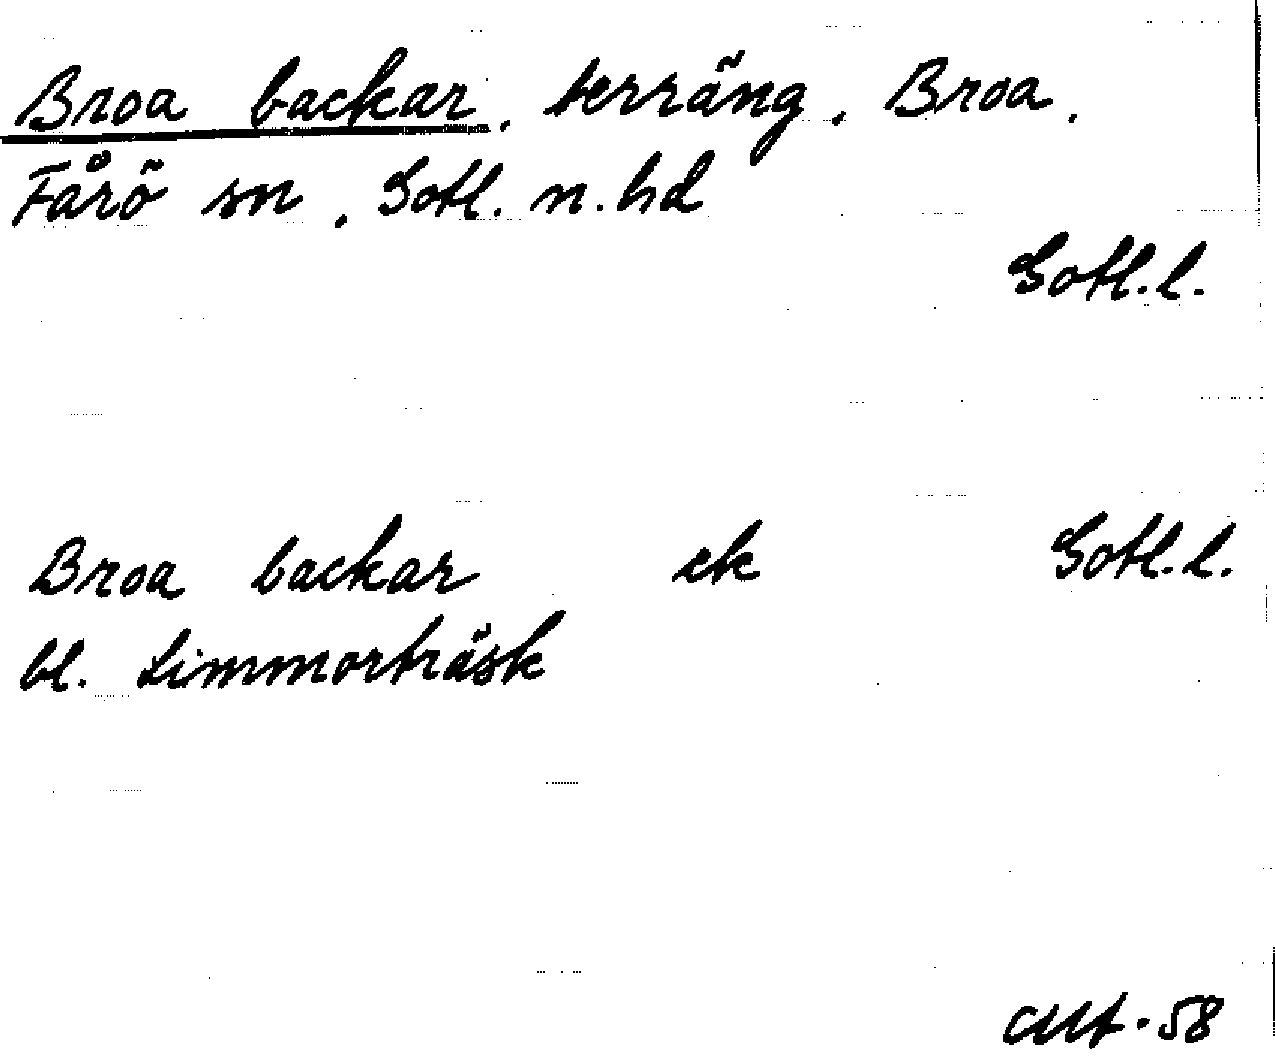 Broa backar, terräng, Broa,
Fårö sn, Gotl. n. hd
Gotl. l.
Broa backar ek Gotl. l.
bl. Limmorträsk
-58